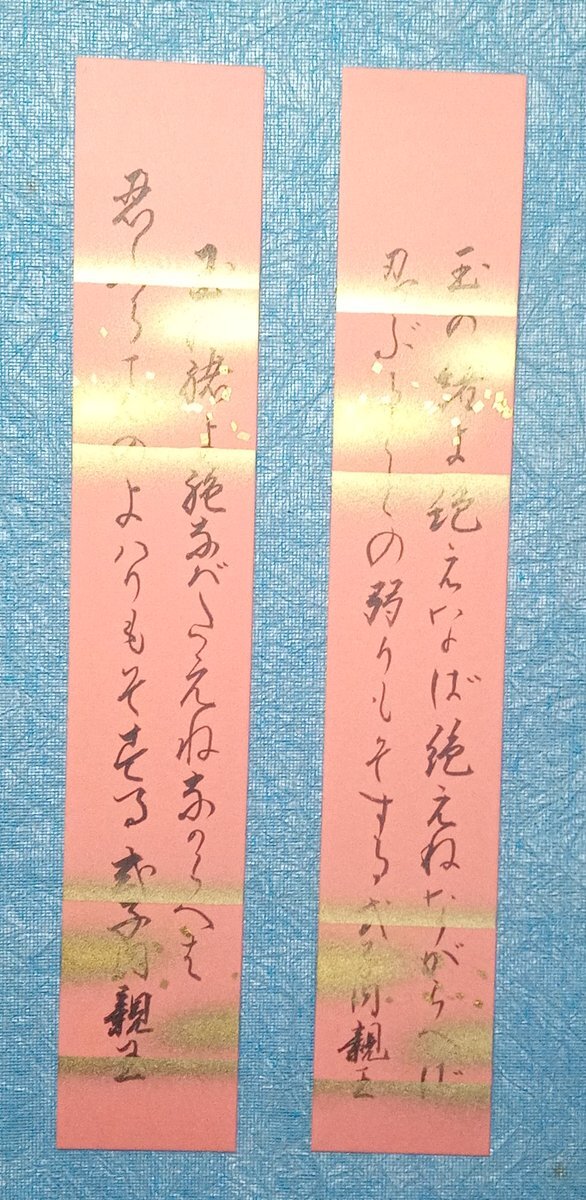 玉の緒よ絶えなば絶えねながらへば
忍ぶることの弱りもそする 式子内親王
玉の緒よ絶なばたえねながらへは
忍ふることのよハりもそする 式子内親王